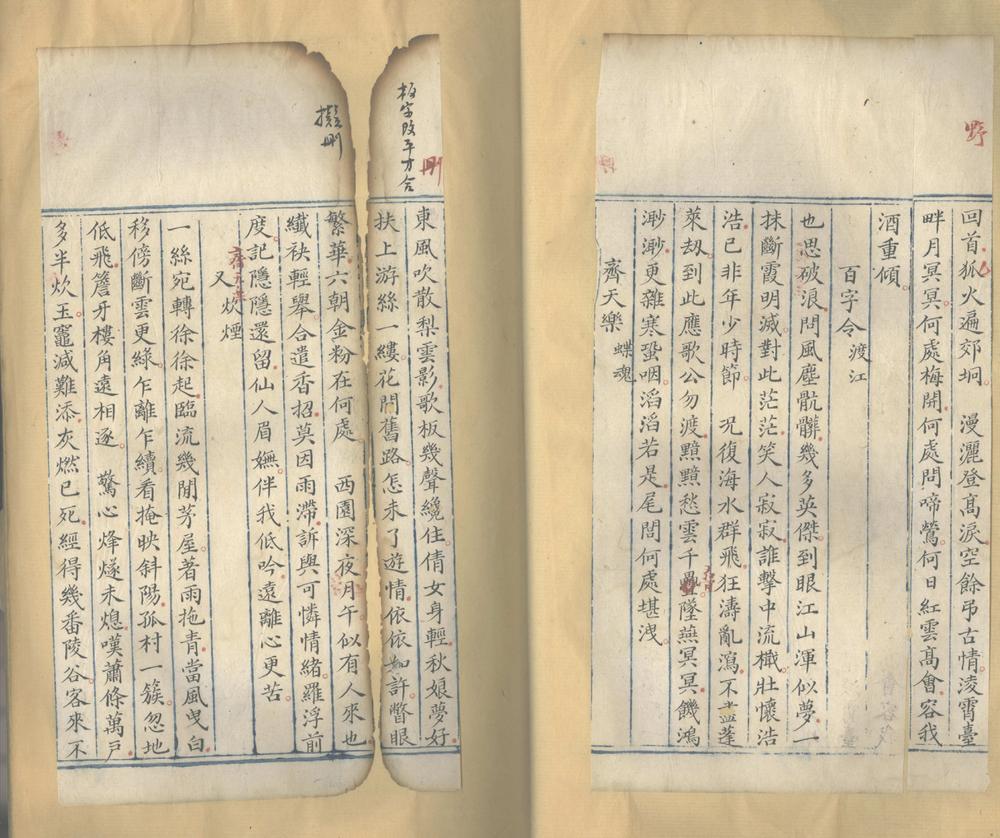 野
回首狐火遍郊坰　漫灑登高淚空餘弔古情淩霄臺
畔月冥冥何處梅開何處問啼鶯何日紅雲高會容我
酒重傾
百字令 渡江
也思破浪問風塵骯髒幾多英傑到眼江山渾似夢一
抹斷霞明滅對此茫茫笑人寂寂誰擊中流檝壯懷浩
浩已非年少時節　況復海水群飛狂濤亂瀉不盡蓬
萊刼到此應歌公勿渡黯黯愁雲千疊墜燕冥冥饑鴻
渺渺更雜寒蛩咽滔滔若是尾閭何處堪洩
齊天樂 蝶魂
刪
板字改平才合
東風吹散梨雲影歌板幾聲纔住倩女身輕秋娘夢好
扶上游絲一縷花間舊路怎未了遊情依依如許瞥眼
繁華六朝金粉在何處　西園深夜月午似有人來也
纖袂輕舉合遣香招莫因雨滯訴與可憐情緒羅浮前
度記隱隱還留仙人眉嫵伴我低吟遠離心更苦
擬刪
又 炊煙
一絲宛轉徐徐起臨流幾閒芳屋著雨拖青當風曳白
移傍斷雲更綠乍離乍續看掩映斜陽孤村一簇忽地
低飛簷牙樓角遠相逐　驚心烽燧未熄嘆蕭條萬戶
多半炊玉竈減難添灰燃已死經得幾番陵谷客來不